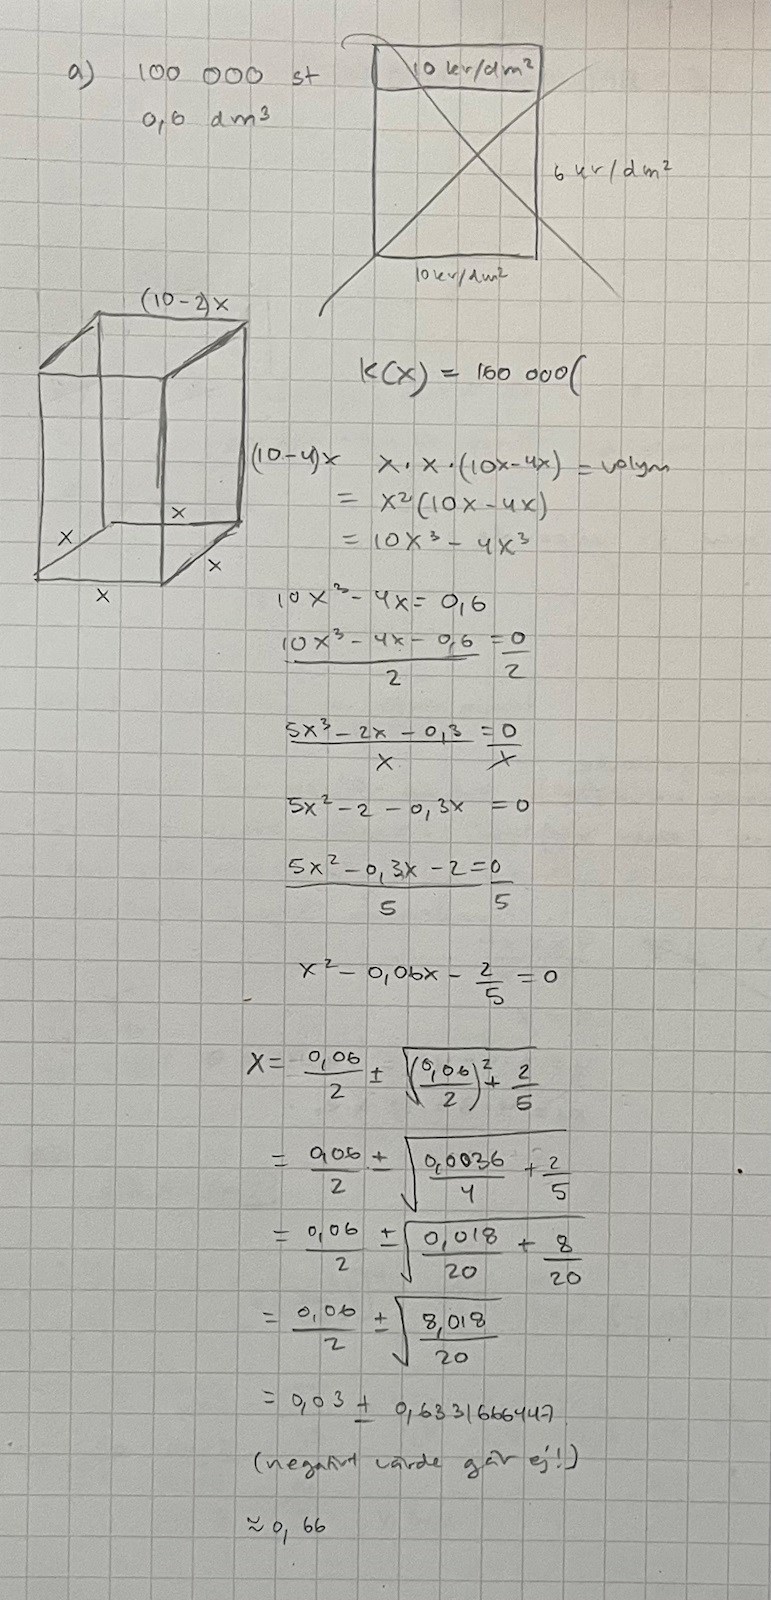 a) 100 000 st
0,6 dm³
10 kr/dm²
6 kr/dm²
10 kr/dm²
(10-2)x
K(x) = 100 000(
(10-4)x
x
x
x
x
x · x · (10x-4x) = volym
= x²(10x-4x)
= 10x³ - 4x³
10x³ - 4x = 0,6
10x³ - 4x - 0,6 = 0
2 2
5x³ - 2x - 0,3 = 0
x x
5x² - 2 - 0,3x = 0
5x² - 0,3x - 2 = 0
5 5
x² - 0,06x - 2/5 = 0
x = 0,06/2 ± √((0,06/2)² + 2/5)
= 0,06/2 ± √(0,0036/4 + 2/5)
= 0,06/2 ± √(0,018/20 + 8/20)
= 0,06/2 ± √(8,018/20)
= 0,03 ± 0,6331666447
(negativt värde går ej!)
≈ 0,66